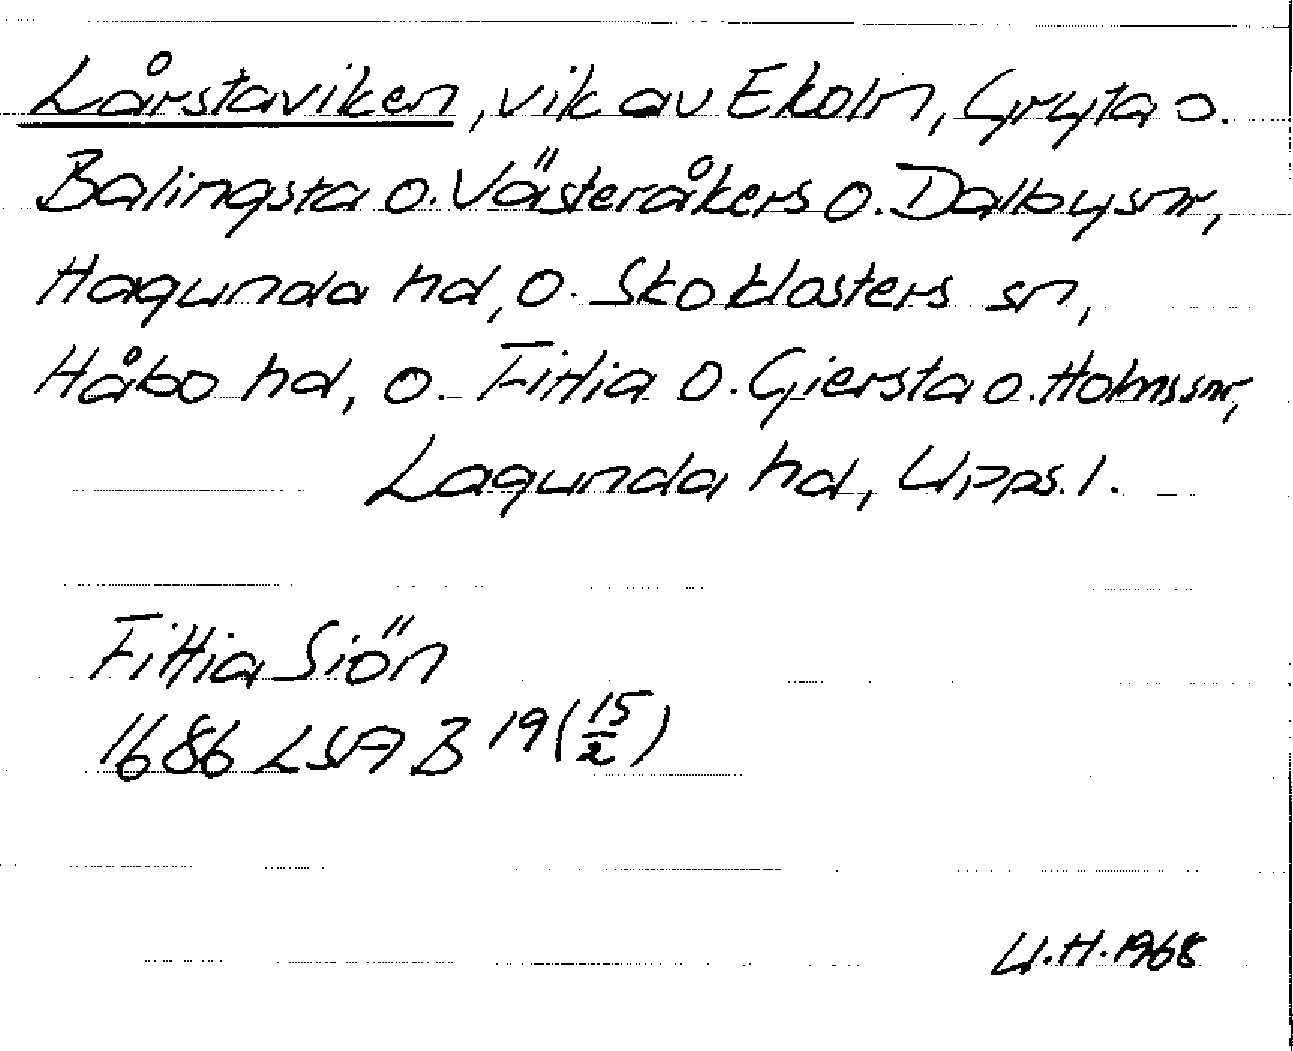 Lårstaviken, vik av Ekoln, Gryta o.
Balingsta o. Västeråkers o. Dalby snr,
Hagunda hd, o. Skoklosters sn,
Håbo hd, o. Fittja o. Giersta o. Holms snr,
Lagunda hd, Upps. l.
Fittia Siön
1686 LSA B 19 (15/2)
U.H. 1968